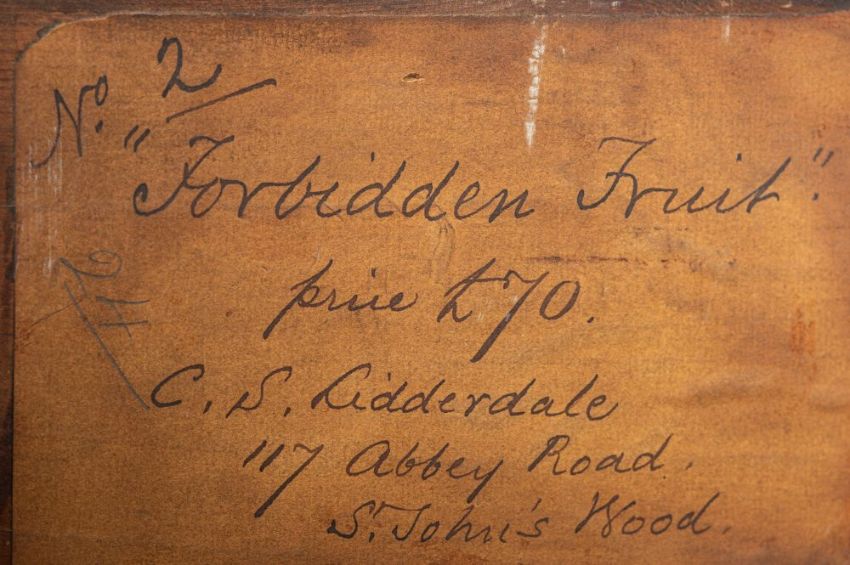 No. 2
"Forbidden Fruit".
price £70.
C. S. Lidderdale
117 Abbey Road.
St. John's Wood.